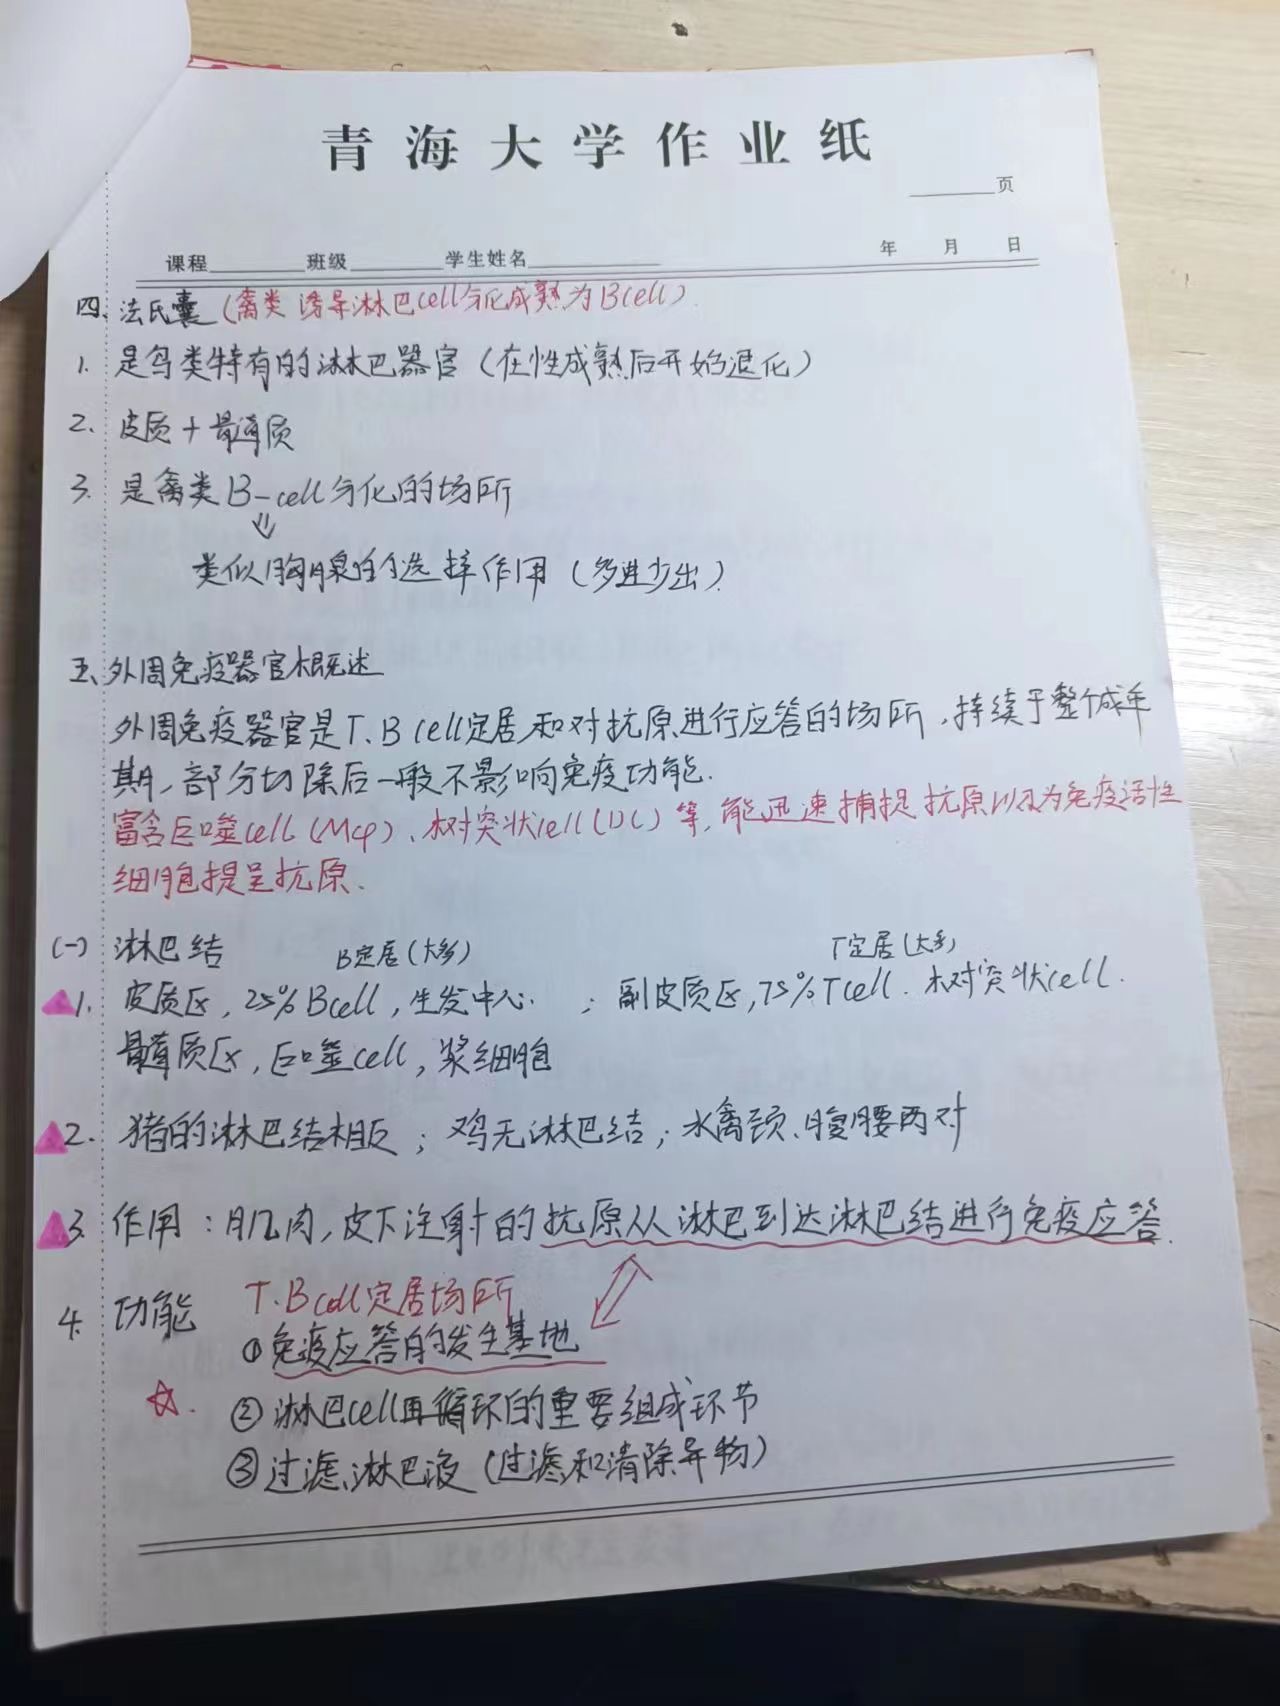 青海大学作业纸
页
课程 班级 学生姓名 年 月 日
四、法氏囊(禽类 诱导淋巴cell分化成熟为Bcell).
1. 是鸟类特有的淋巴器官(在性成熟后开始退化)
2. 皮质+髓质
3. 是禽类B-cell分化的场所
⇓
类似胸腺的选择作用(多进少出).
五、外周免疫器官概述
外周免疫器官是T.B cell定居和对抗原进行应答的场所,持续于整个成年
期,部分切除后一般不影响免疫功能.
富含巨噬cell(Mφ)、树突状cell(DC)等,能迅速捕捉抗原以及为免疫活性
细胞提呈抗原.
(一) 淋巴结 B定居(大多) T定居(大多)
1. 皮质区,25%Bcell,生发中心. ;副皮质区,75%Tcell.树突状cell.
髓质区,巨噬cell,浆细胞
2. 猪的淋巴结相反;鸡无淋巴结;水禽颈、腹腰两对
3. 作用:肌肉,皮下注射的抗原从淋巴到达淋巴结进行免疫应答.
4. 功能 T.Bcell定居场所
①免疫应答的发生基地
☆. ②淋巴cell再循环的重要组成环节
③过滤淋巴液(过滤和清除异物)